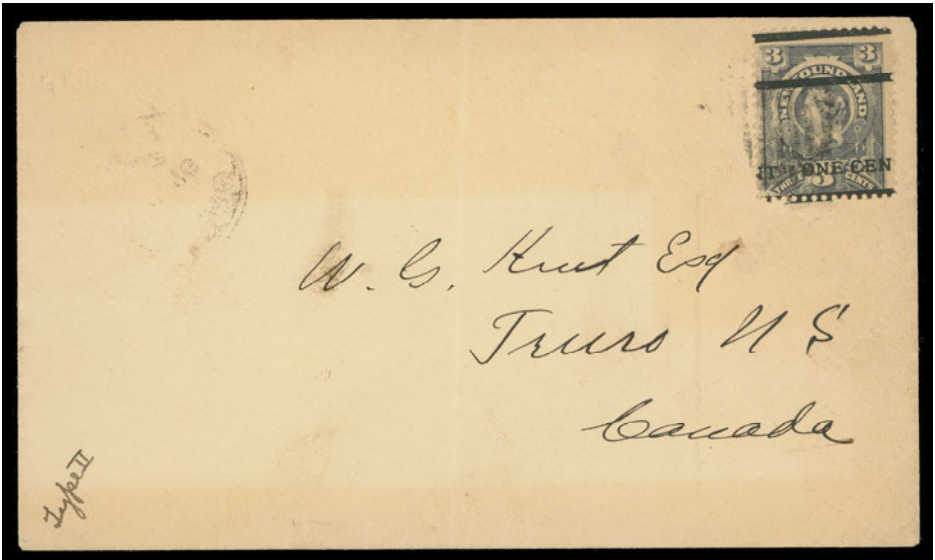 3 3
NEWFOUNDLAND
NT ONE CEN
W. G. Kent Esq
Truro N S
Canada
Type II